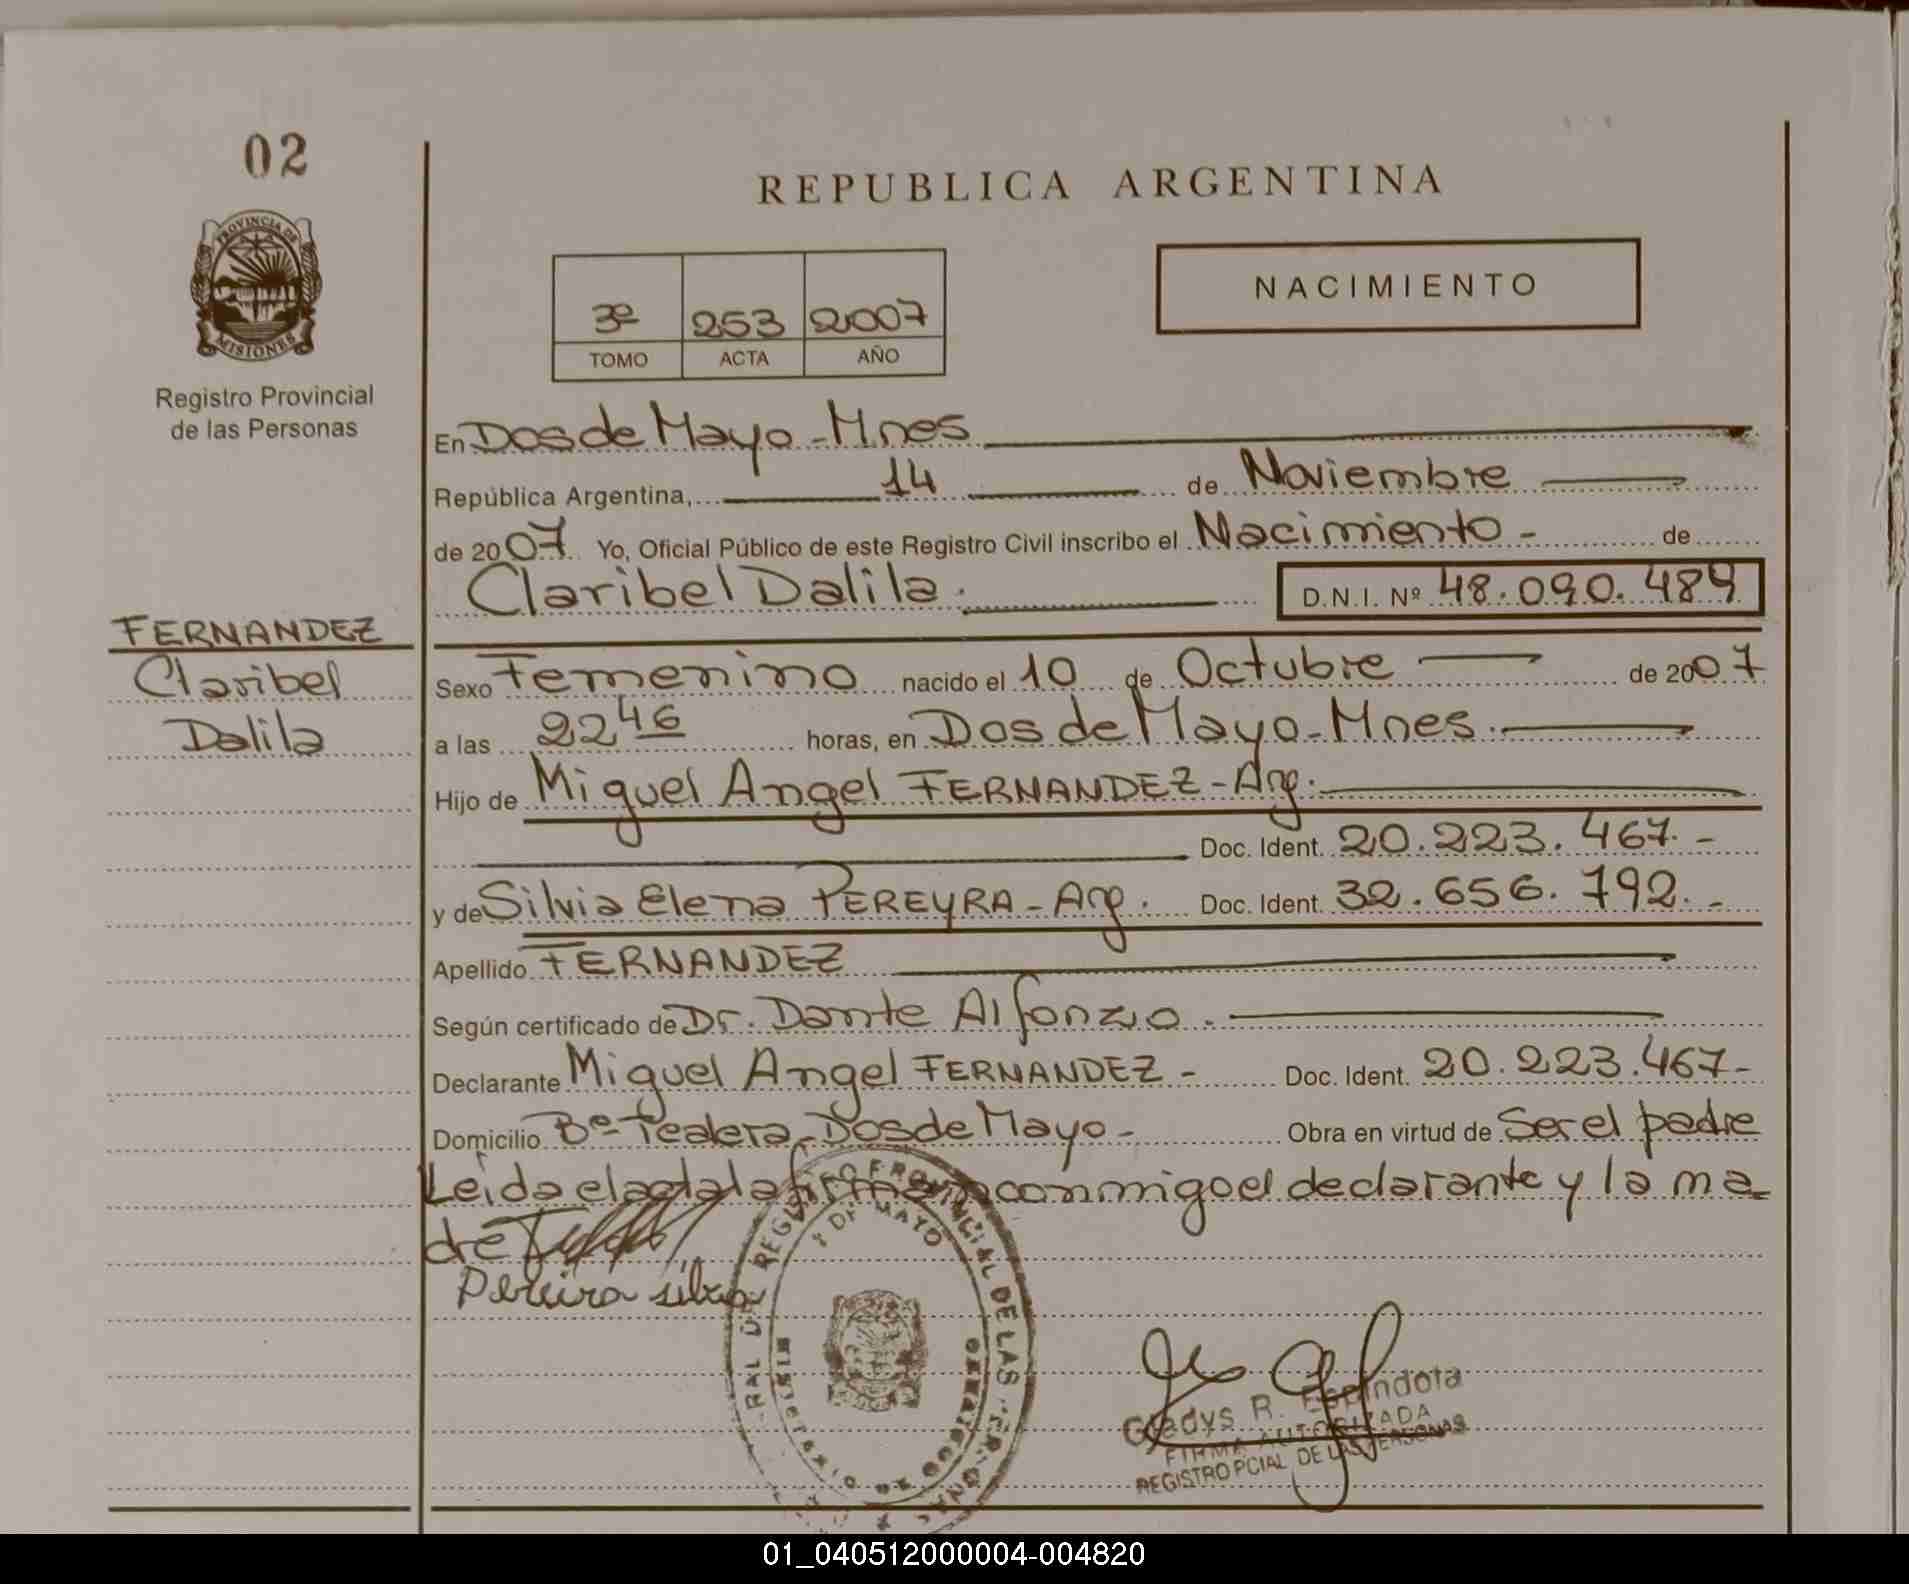 02
PROVINCIA DE
MISIONES
Registro Provincial
de las Personas
FERNANDEZ
Claribel
Dalila
REPUBLICA ARGENTINA
3º 253 2007
TOMO ACTA AÑO
NACIMIENTO
En Dos de Mayo - Mnes
República Argentina, 14 de Noviembre
de 2007 Yo, Oficial Público de este Registro Civil inscribo el Nacimiento - de
Claribel Dalila. D.N.I. Nº 48.090.489
Sexo Femenino nacido el 10 de Octubre de 2007
a las 22 46 horas, en Dos de Mayo - Mnes.
Hijo de Miguel Angel FERNANDEZ - Arg.
Doc. Ident. 20.223.467.-
y de Silvia Elena PEREYRA - Arg. Doc. Ident. 32.656.792.-
Apellido FERNANDEZ
Según certificado de Dr. Dante Alfonzo.
Declarante Miguel Angel FERNANDEZ - Doc. Ident. 20.223.467-
Domicilio Bº Tealera - Dos de Mayo - Obra en virtud de Ser el padre
Leida el acta la firman conmigo el declarante y la ma-
dre
Pereira silvia
DE MAYO
Gladys R. Espindola
FIRMA AUTORIZADA
REGISTRO PCIAL DE LAS PERSONAS
01_040512000004-004820